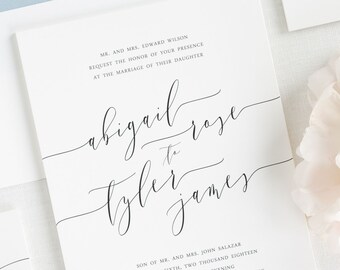 MR. AND MRS. EDWARD WILSON
REQUEST THE HONOR OF YOUR PRESENCE
AT THE MARRIAGE OF THEIR DAUGHTER
abigail
rose
to
tyler
james
SON OF MR. AND MRS. JOHN SALAZAR
TWO THOUSAND EIGHTEEN